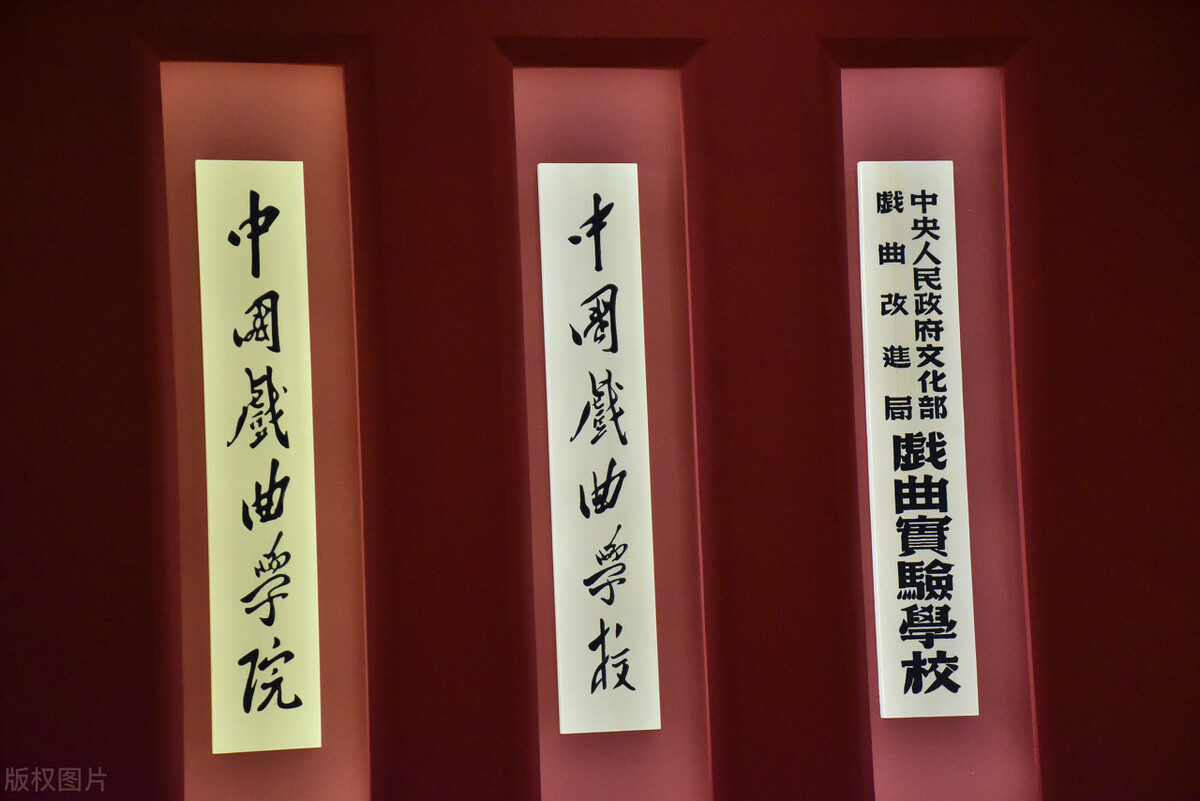 中國戲曲学院
中國戲曲学校
中央人民政府文化部
戲曲改進局
戲曲實驗學校
版权图片